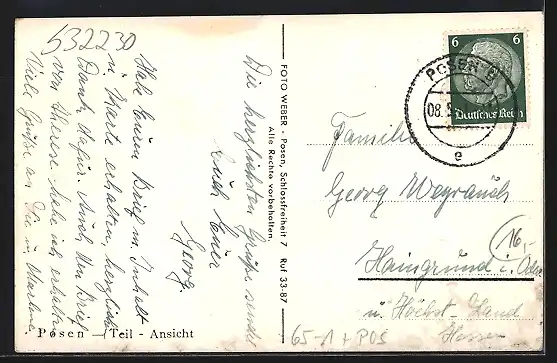 532230
Habe Euren Brief m. Inhalt
u. Karte erhalten, herzlichen
Dank dafür. Auch den Brief
von Therese habe ich erhalten
Viele Grüße an
Die herzlichsten Grüße sendet
Euch Euer
Georg.
Posen — Teil - Ansicht
FOTO WEBER - Posen, Schlossfreiheit 7 Ruf 33-87
Alle Rechte vorbehalten.
6 6
Deutsches Reich
POSEN
08.
e
Familie
Georg Weyrauch
Haingrund i. Odw.
u. Höchst - Land
Hessen
16,-
65-1 + POS